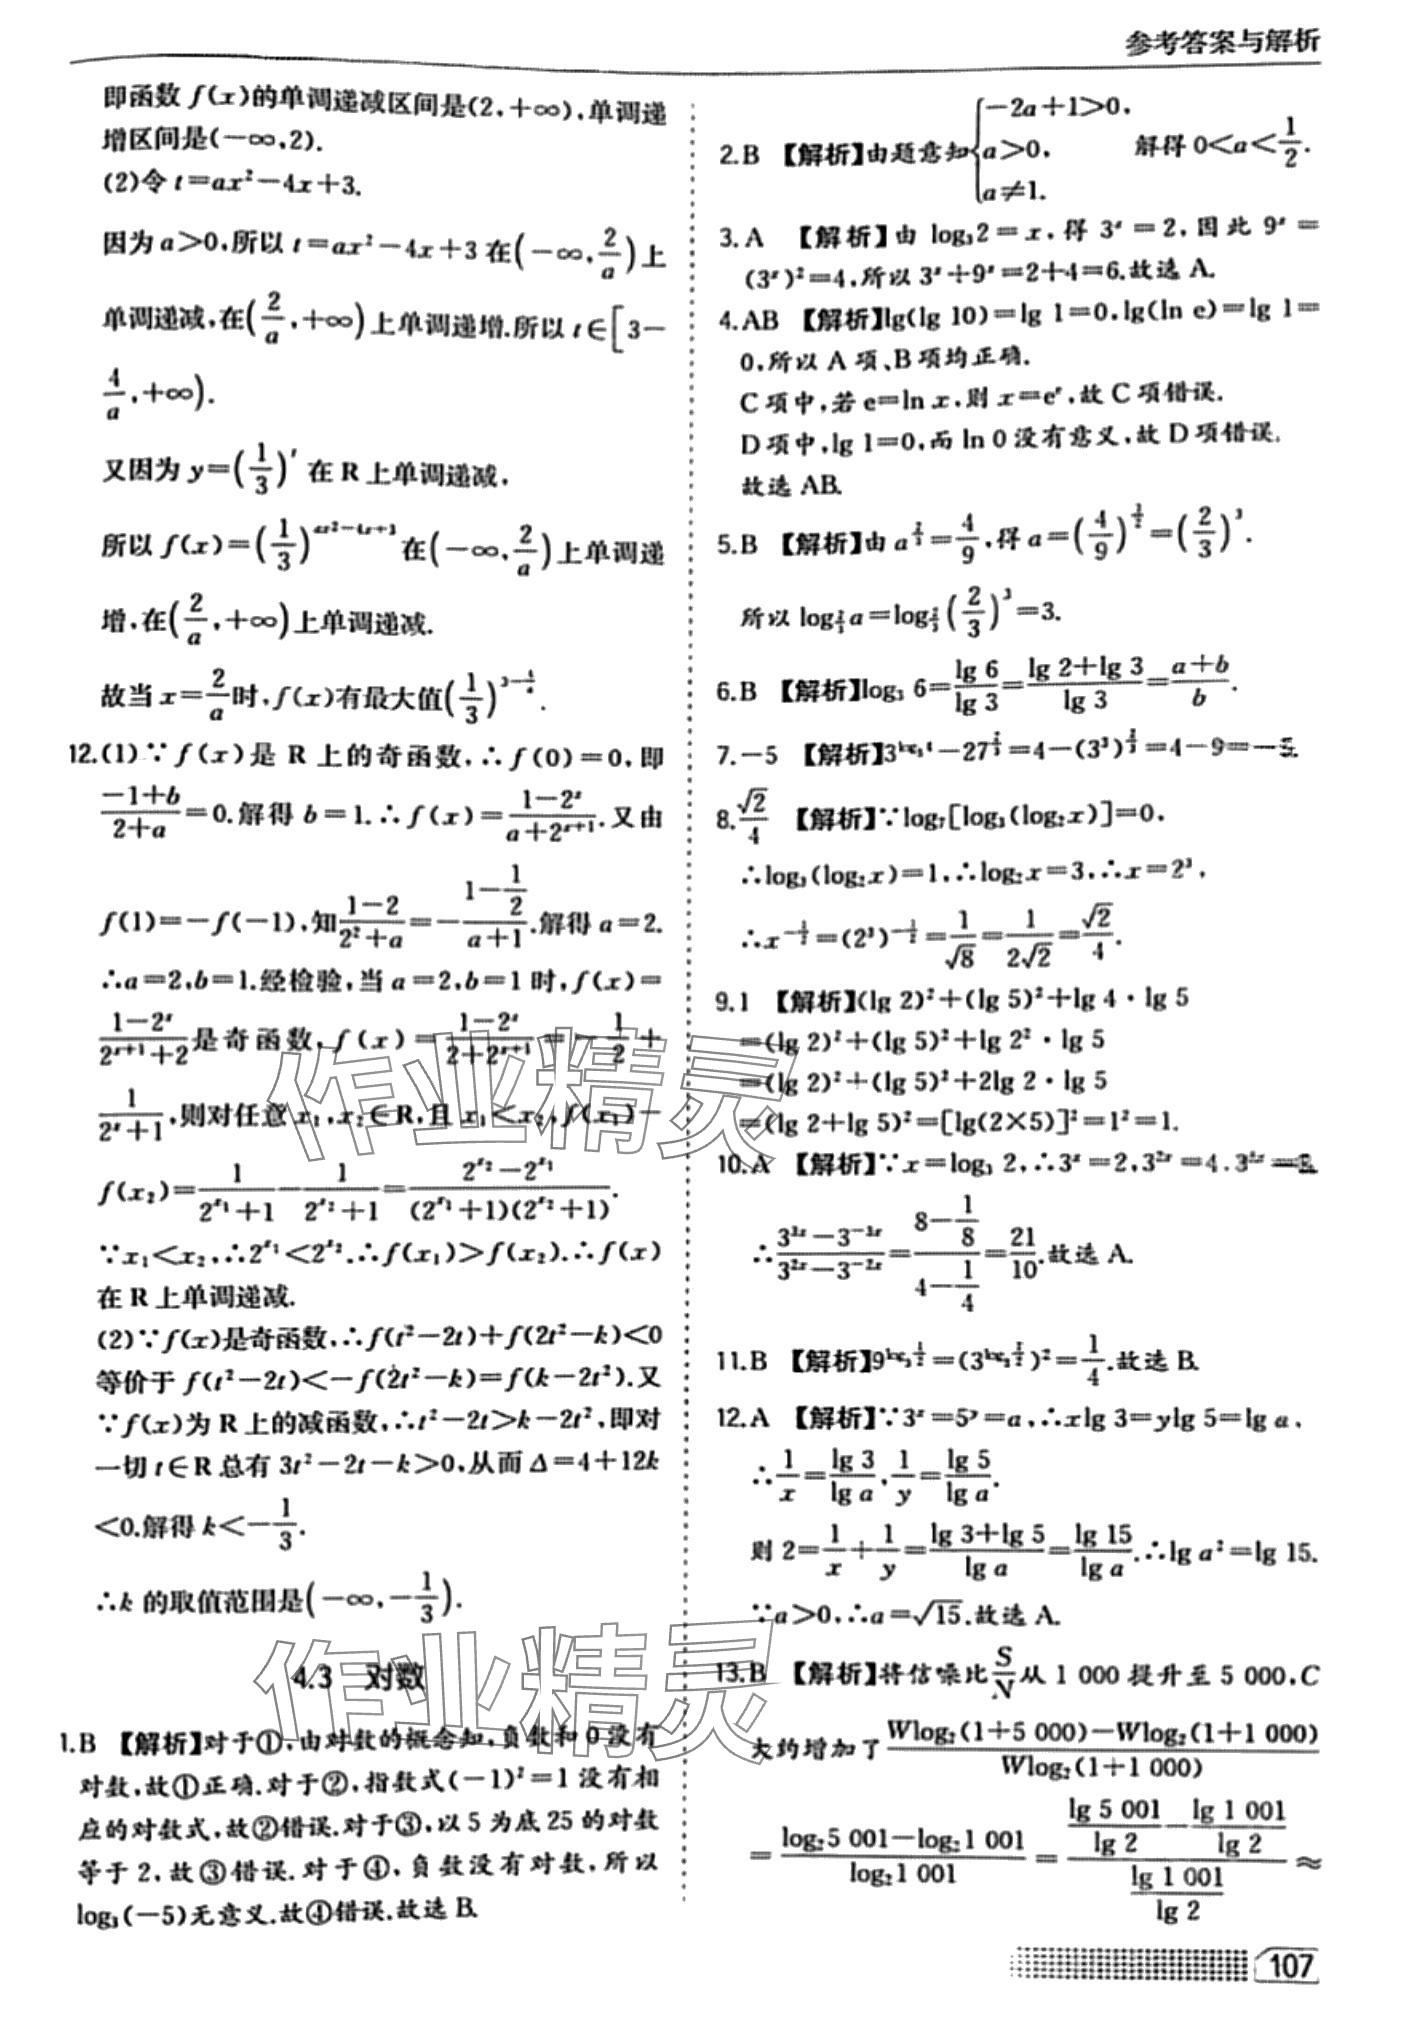 参考答案与解析
即函数 f(x)的单调递减区间是(2,+∞),单调递
增区间是(-∞,2).
(2)令 t=ax²-4x+3.
因为 a>0,所以 t=ax²-4x+3 在(-∞,2/a)上
单调递减,在(2/a,+∞)上单调递增.所以 t∈[3-
4/a,+∞).
又因为 y=(1/3)^t 在 R 上单调递减,
所以 f(x)=(1/3)^(ax²-4x+3) 在(-∞,2/a)上单调递
增,在(2/a,+∞)上单调递减.
故当 x=2/a 时,f(x)有最大值(1/3)^(3-4/a).
12.(1)∵f(x)是 R 上的奇函数,∴f(0)=0,即
(-1+b)/(2+a)=0.解得 b=1.∴f(x)=(1-2^x)/(a+2^(x+1)).又由
f(1)=-f(-1),知(1-2)/(2²+a)=-(1-1/2)/(a+1).解得 a=2.
∴a=2,b=1.经检验,当 a=2,b=1 时,f(x)=
(1-2^x)/(2^(x+1)+2)是奇函数,f(x)=(1-2^x)/(2+2^(x+1))=-1/2+
1/(2^x+1),则对任意 x₁,x₂∈R,且 x₁<x₂,f(x₁)-
f(x₂)=1/(2^x₁+1)-1/(2^x₂+1)=(2^x₂-2^x₁)/((2^x₁+1)(2^x₂+1)).
∵x₁<x₂,∴2^x₁<2^x₂.∴f(x₁)>f(x₂).∴f(x)
在 R 上单调递减.
(2)∵f(x)是奇函数,∴f(t²-2t)+f(2t²-k)<0
等价于 f(t²-2t)<-f(2t²-k)=f(k-2t²).又
∵f(x)为 R 上的减函数,∴t²-2t>k-2t²,即对
一切 t∈R 总有 3t²-2t-k>0,从而 Δ=4+12k
<0.解得 k<-1/3.
∴k 的取值范围是(-∞,-1/3).
4.3 对数
1.B 【解析】对于①,由对数的概念知,负数和 0 没有
对数,故①正确.对于②,指数式(-1)²=1 没有相
应的对数式,故②错误.对于③,以 5 为底 25 的对数
等于 2,故③错误.对于④,负数没有对数,所以
log₃(-5)无意义.故④错误.故选 B.
2.B 【解析】由题意知{-2a+1>0, a>0, a≠1. 解得 0<a<1/2.
3.A 【解析】由 log₃2=x,得 3^x=2,因此 9^x=
(3^x)²=4,所以 3^x+9^x=2+4=6.故选 A.
4.AB 【解析】lg(lg 10)=lg 1=0,lg(ln e)=lg 1=
0,所以 A 项、B 项均正确.
C 项中,若 e=ln x,则 x=e^e,故 C 项错误.
D 项中,lg 1=0,而 ln 0 没有意义,故 D 项错误.
故选 AB.
5.B 【解析】由 a^(2/3)=4/9,得 a=(4/9)^(3/2)=(2/3)³.
所以 log_(2/3) a=log_(2/3)(2/3)³=3.
6.B 【解析】log₃ 6=lg 6/lg 3=(lg 2+lg 3)/lg 3=(a+b)/b.
7.-5 【解析】3^(log₃4)-27^(2/3)=4-(3³)^(2/3)=4-9=-5.
8.√2/4 【解析】∵log₇[log₃(log₂x)]=0,
∴log₃(log₂x)=1,∴log₂x=3,∴x=2³,
∴x^(-1/2)=(2³)^(-1/2)=1/√8=1/(2√2)=√2/4.
9.1 【解析】(lg 2)²+(lg 5)²+lg 4·lg 5
=(lg 2)²+(lg 5)²+lg 2²·lg 5
=(lg 2)²+(lg 5)²+2lg 2·lg 5
=(lg 2+lg 5)²=[lg(2×5)]²=1²=1.
10.A 【解析】∵x=log₃ 2,∴3^x=2,3^(2x)=4,3^(3x)=8.
∴(3^(3x)-3^(-3x))/(3^(2x)-3^(-2x))=(8-1/8)/(4-1/4)=21/10.故选 A.
11.B 【解析】9^(log₃ 1/2)=(3^(log₃ 1/2))²=1/4.故选 B.
12.A 【解析】∵3^x=5^y=a,∴xlg 3=ylg 5=lg a,
∴1/x=lg 3/lg a,1/y=lg 5/lg a.
则 2=1/x+1/y=(lg 3+lg 5)/lg a=lg 15/lg a.∴lg a²=lg 15.
∵a>0,∴a=√15.故选 A.
13.B 【解析】将信噪比S/N从 1 000 提升至 5 000,C
大约增加了(Wlog₂(1+5 000)-Wlog₂(1+1 000))/(Wlog₂(1+1 000))
=(log₂5 001-log₂1 001)/(log₂1 001)=(lg 5 001/lg 2-lg 1 001/lg 2)/(lg 1 001/lg 2)≈
107
作业精灵
作业精灵